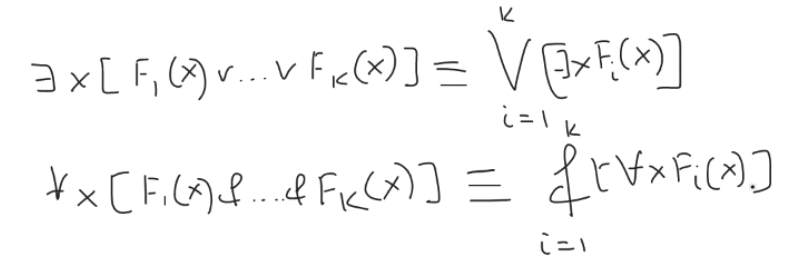 ∃x[F₁(x) ∨ ... ∨ Fₖ(x)] ≡ ⋁ᵢ₌₁ᵏ [∃xFᵢ(x)]
∀x[F₁(x) & ... & Fₖ(x)] ≡ &ᵢ₌₁ᵏ [∀xFᵢ(x).]